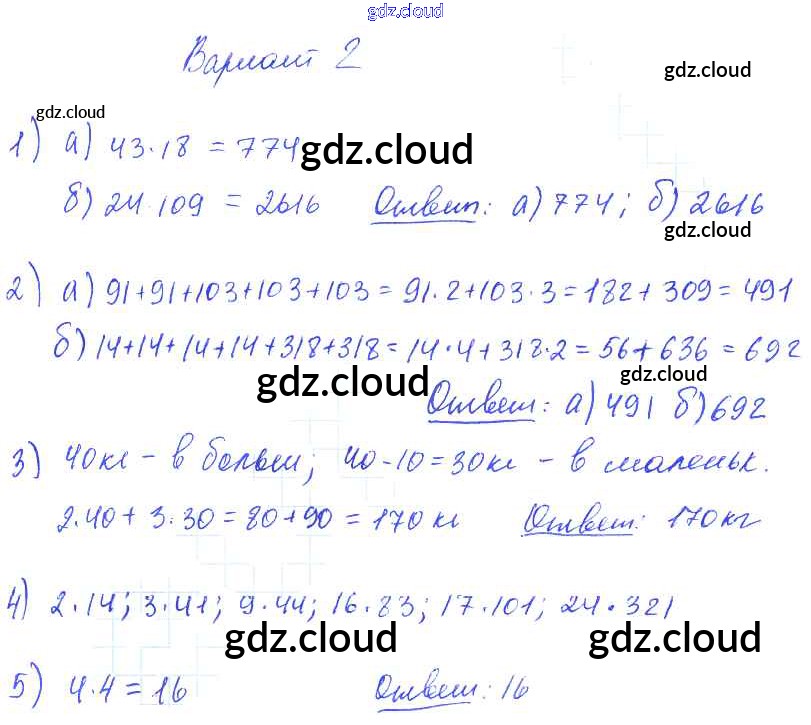 gdz.cloud
Вариант 2
gdz.cloud
gdz.cloud
1) а) 43·18 = 774
gdz.cloud
б) 24·109 = 2616 Ответ: а) 774; б) 2616
gdz.cloud
2) а) 91+91+103+103+103 = 91·2+103·3 = 182+309 = 491
б) 14+14+14+14+318+318 = 14·4+318·2 = 56+636 = 692
gdz.cloud
gdz.cloud
Ответ: а) 491 б) 692
3) 40кг – в больш; 40-10=30кг – в маленьк.
2·40+3·30=80+90=170кг Ответ: 170кг
4) 2·14; 3·41; 9·44; 16·83; 17·101; 24·321
gdz.cloud
gdz.cloud
5) 4·4=16 Ответ: 16